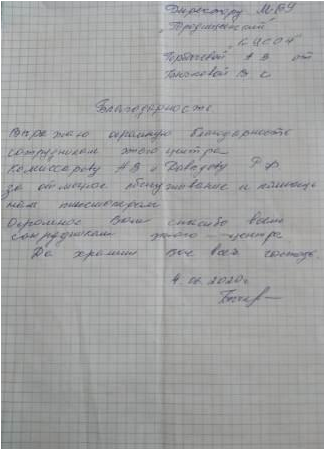 Директору МБУ
"Троицкий
КЦСОН"
Горбачевой А В от
Бычковой В С
Благодарность
Выражаю огромную благодарность
сотрудникам этого центра
Комиссарову А В и Давыдову Р Ф
за отличное обслуживание и помощь
нам пенсионерам
Огромное Вам спасибо всем
сотрудникам этого центра
Да хранит Вас всех господь.
4.06.2020г